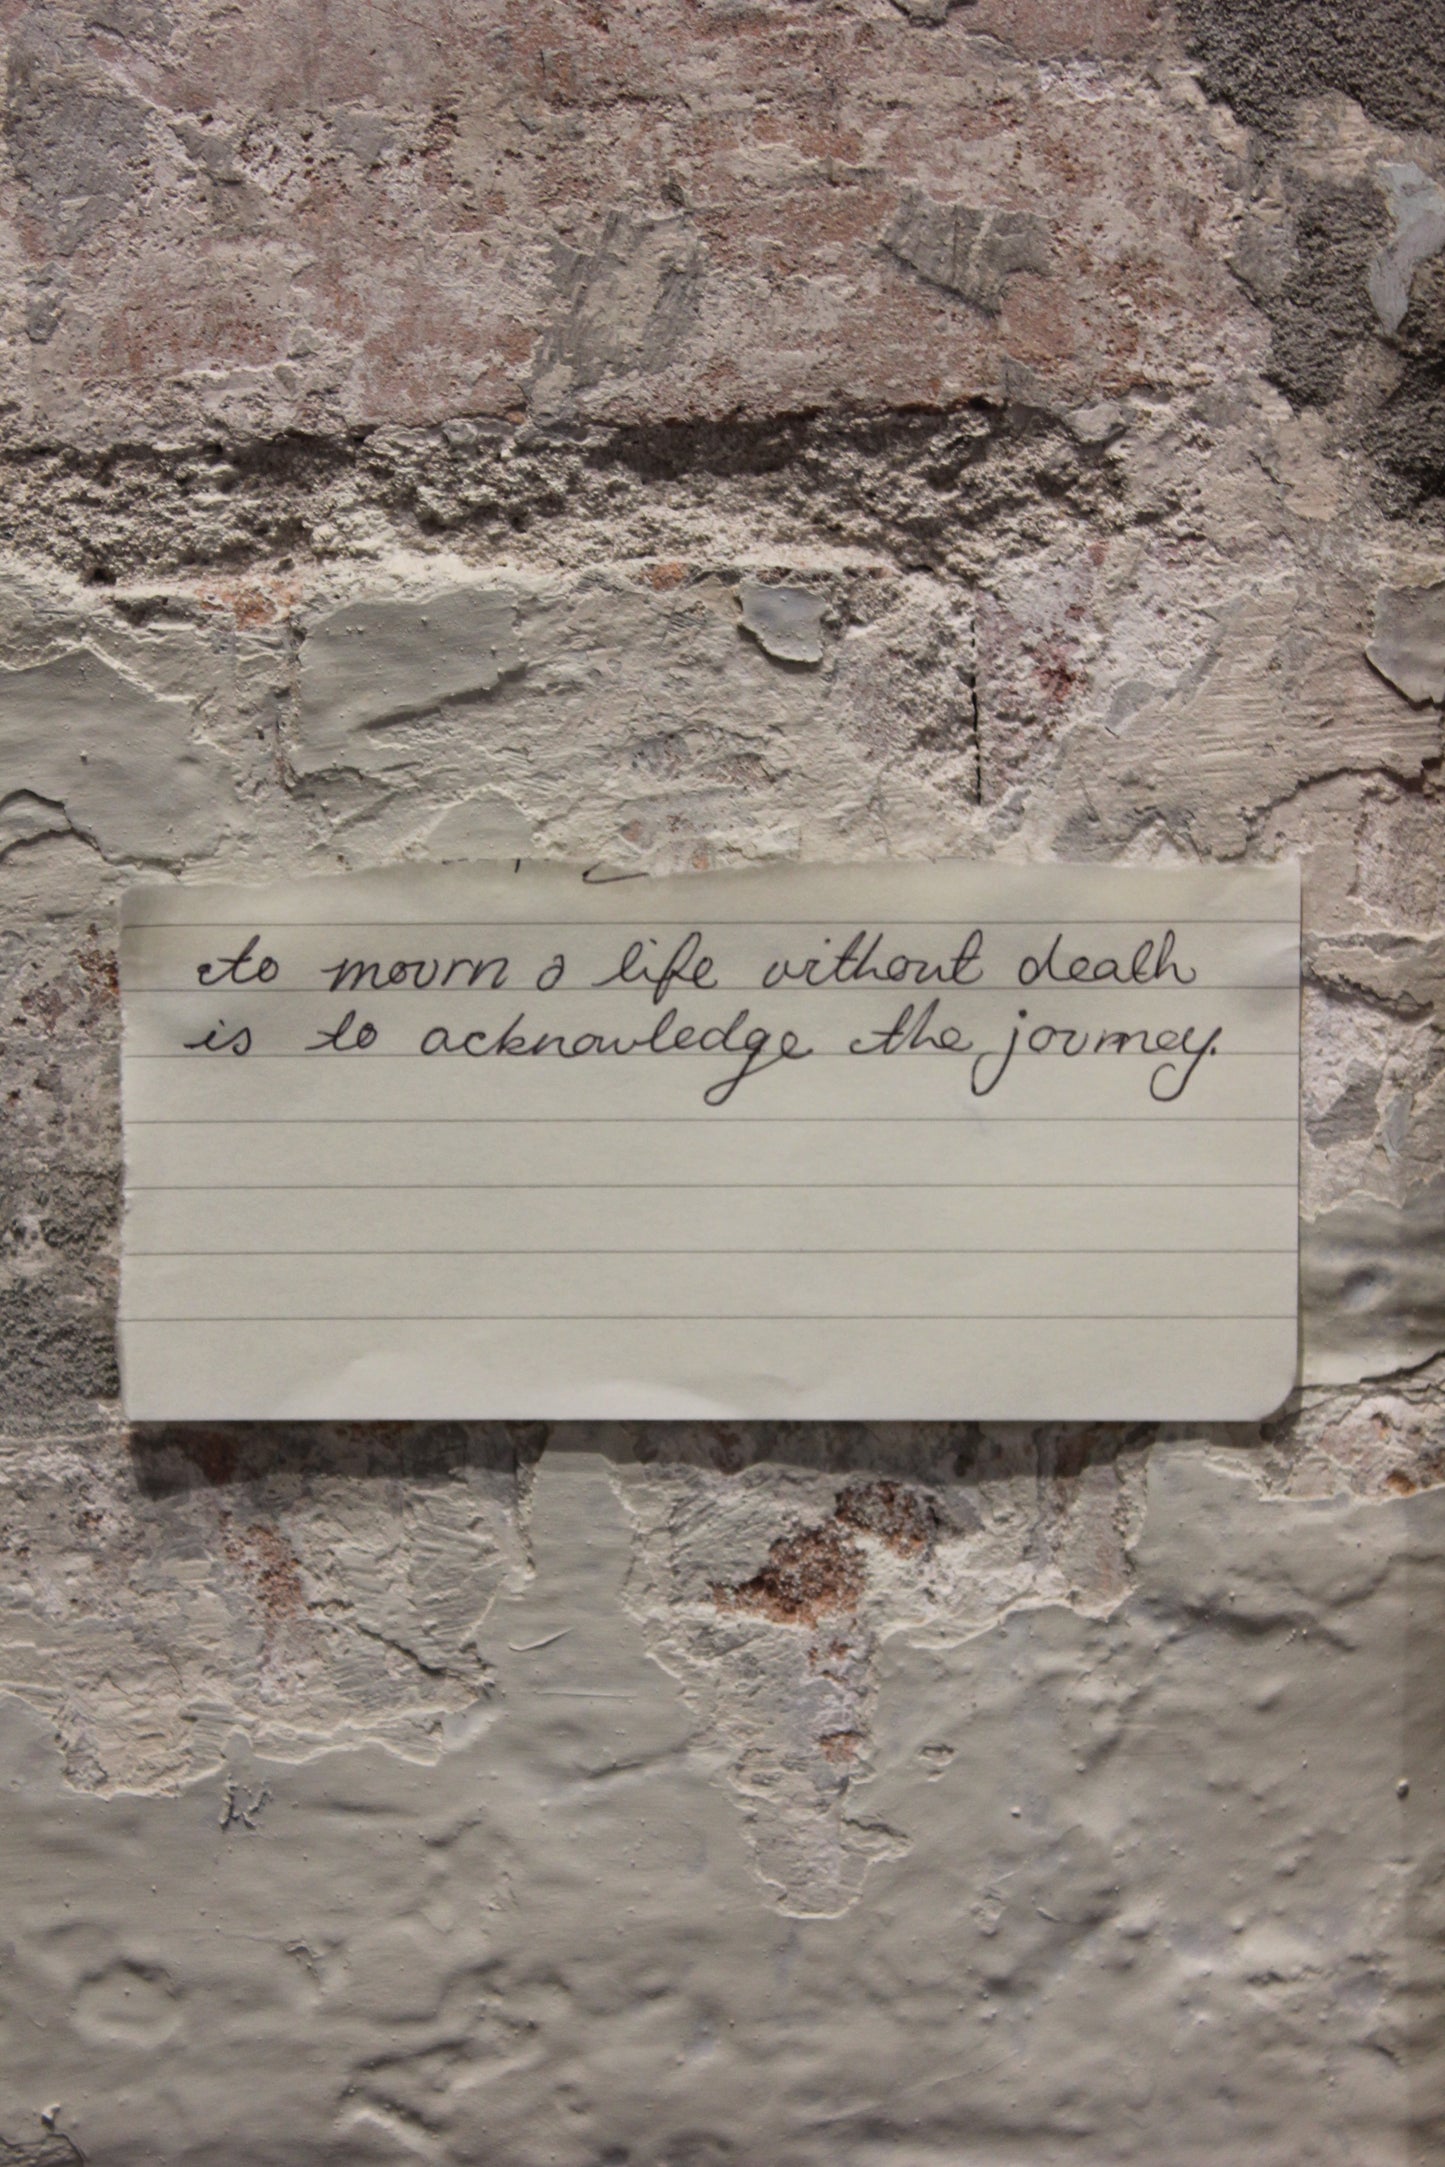 to mourn a life without death
is to acknowledge the journey.